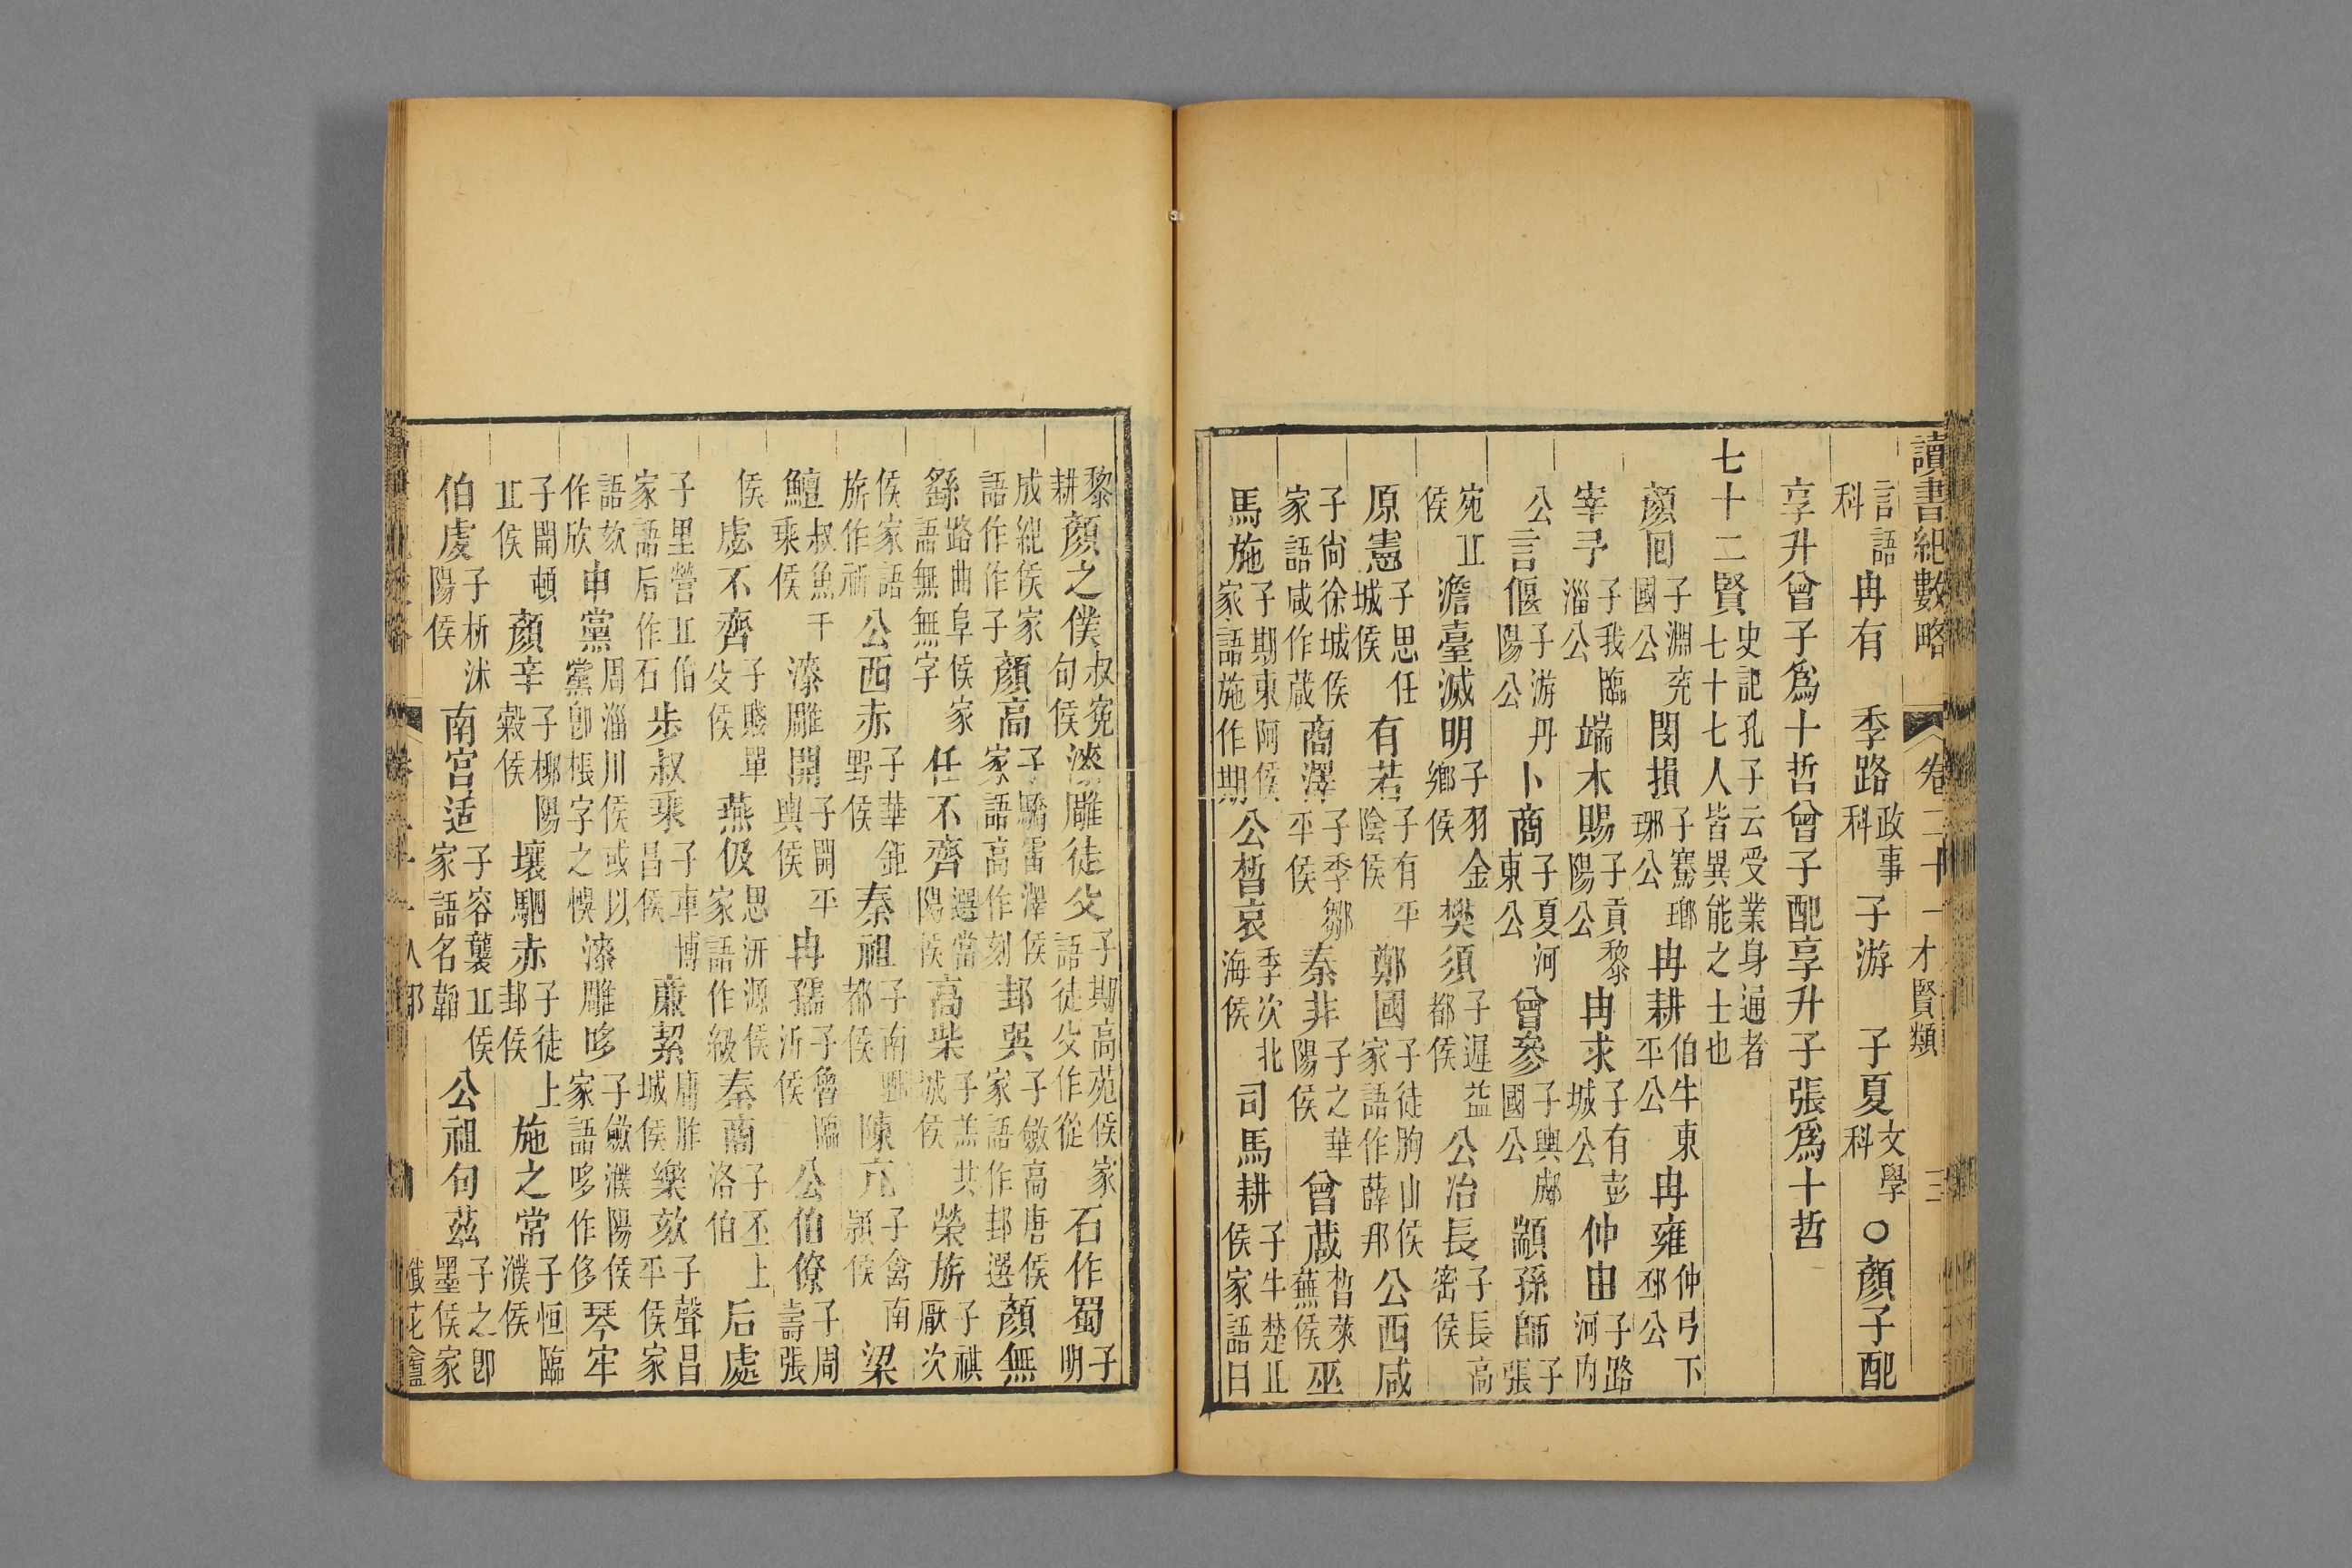 讀書紀數略 卷二十一 才賢類 三
言語科 冉有 季路 政事科 子游 子夏 文學科 ○顏子配
享升曾子爲十哲曾子配享升子張爲十哲
七十二賢 史記孔子云受業身通者七十七人皆異能之士也
顏回 子淵兖國公 閔損 子騫瑯琊公 冉耕 伯牛東平公 冉雍 仲弓下邳公
宰予 子我臨淄公 端木賜 子貢黎陽公 冉求 子有彭城公 仲由 子路河內
公 言偃 子游丹陽公 卜商 子夏河東公 曾參 子輿郕國公 顓孫師 子張
宛丘侯 澹臺滅明 子羽金鄉侯 樊須 子遲益都侯 公冶長 子長高密侯
原憲 子思任城侯 有若 子有平陰侯 鄭國 子徒朐山侯家語作薛邦 公西咸
子尙徐城侯家語咸作蒧 商澤 子季鄒平侯 秦非 子之華陽侯 曾蒧 晳萊蕪侯 巫
馬施 子期東阿侯家語施作期 公晳哀 季次北海侯 司馬耕 子牛楚丘侯家語曰
黎耕 顏之僕 叔宛句侯 漆雕徒父 子期高苑侯家語徒父作從 石作蜀 子明
成紀侯家語作作子 顏高 子驕雷澤侯家語高作刻 邽吳 子斂高唐侯家語作邽選 顏無
繇 路曲阜侯家語無無字 任不齊 選當陽侯 高柴 子羔共城侯 榮旂 子祺厭次
侯家語旂作祈 公西赤 子華鉅野侯 秦祖 子南鄄都侯 陳亢 子禽南潁侯 梁
鱣 叔魚千乘侯 漆雕開 子開平輿侯 冉孺 子魯臨沂侯 公伯僚 子周壽張
侯 處不齊 子賤單父侯 燕伋 思汧源侯家語作級 秦商 子丕上洛伯 后處
子里營丘伯家語后作石 步叔乘 子車博昌侯 廉絜 庸胙城侯 樂欬 子聲昌平侯家
語欬作欣 申黨 周淄川侯或以黨卽棖字之悞 漆雕哆 子斂濮陽侯家語哆作侈 琴牢
子開頓丘侯 顏辛 子栁陽榖侯 壤駟赤 子徒上邽侯 施之常 子恒臨濮侯
伯虔 子析沭陽侯 南宮适 子容龔丘侯家語名韜 公祖句茲 子之卽墨侯家